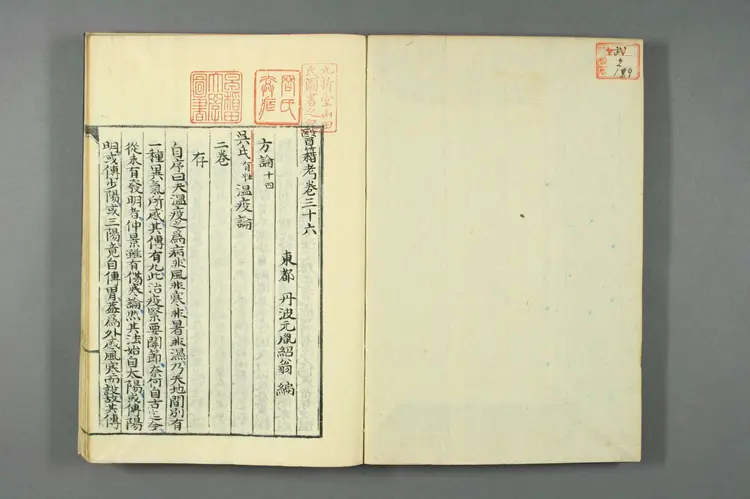 醫籍考卷三十六
東都 丹波元胤紹翁 編
方論十四
吳氏有性溫疫論
二卷
存
自序曰夫溫疫之為病非風非寒非暑非濕乃天地間別有
一種異氣所感其傳有九此治疫緊要關節奈何自古迄今
從未有發明者仲景雖有傷寒論然其法始自太陽或傳陽
明或傳少陽或三陽竟自傳胃蓋為外感風寒而設故其傳
九折堂山田
氏圖書之記
早稻田
大學
圖書
2
189